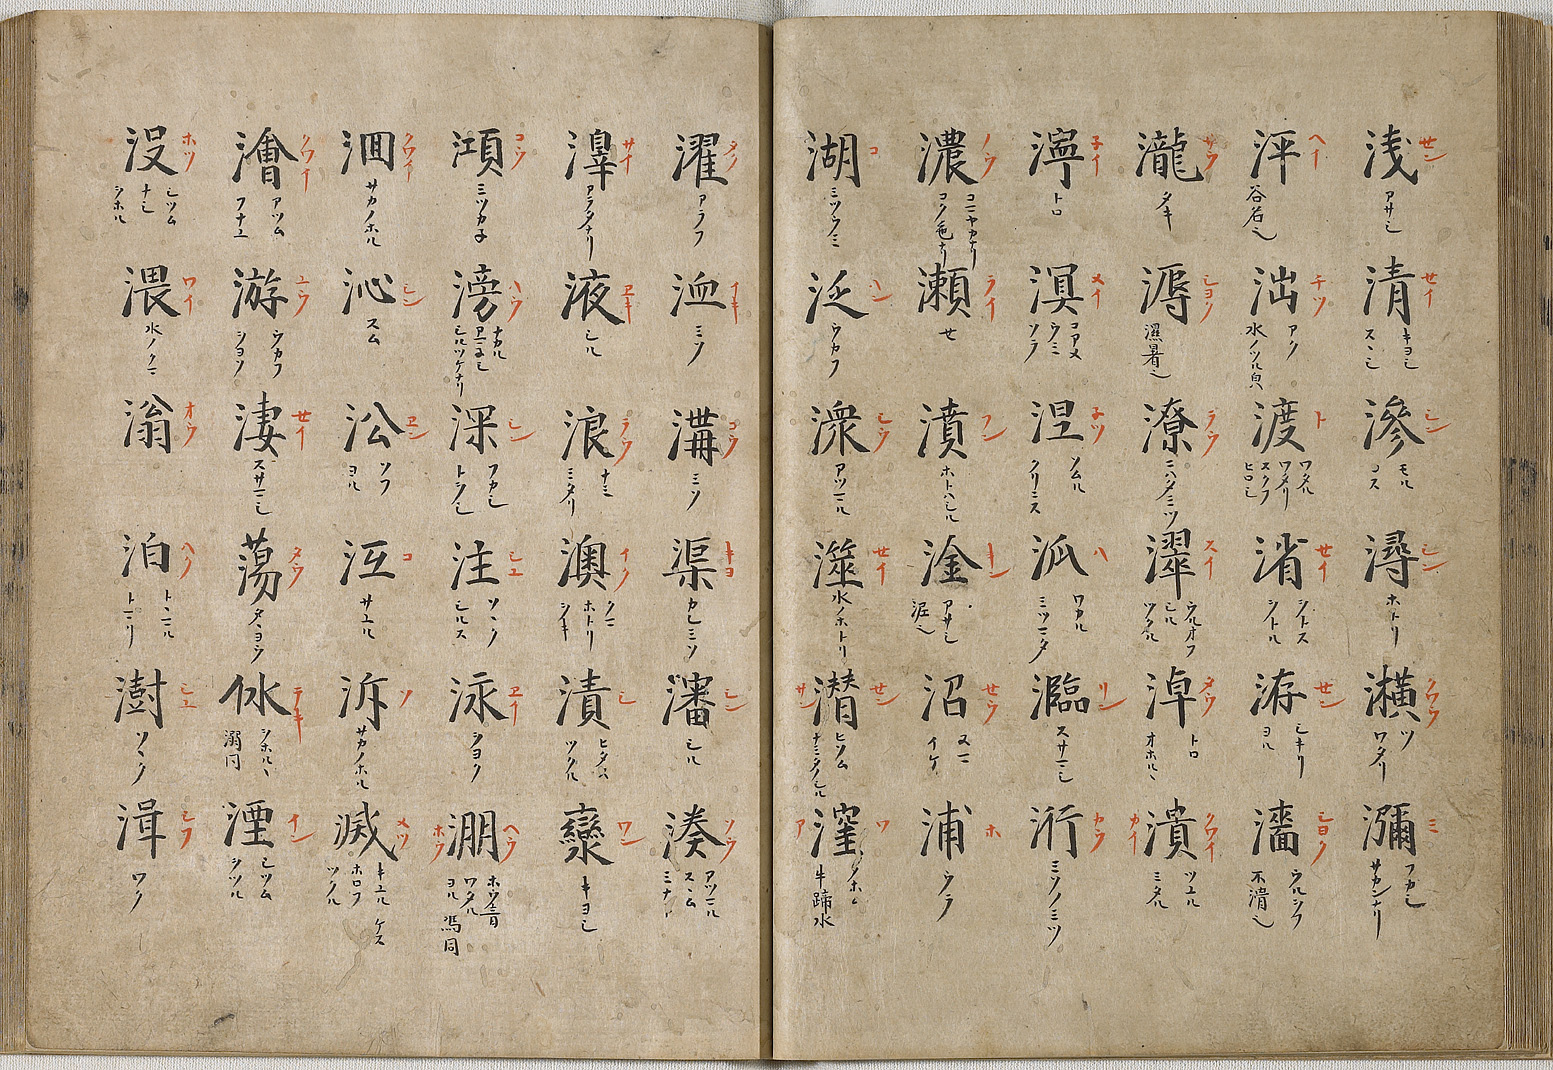 浅 セン アサシ
清 セイ キヨシ スヽシ
滲 シン モル コス
潯 シン ホトリ
瀇 クワウ ワタリ
瀰 ミ フカシ サカンナリ
泙 ヘイ 谷名也
泏 チツ 水ノツル皃
渡 ト ワタル ワタリ スクフ ヒロシ
渻 セイ シトル
洊 セン シキリ ヨル
濇 シヨク 不滑也
瀧 サウ タキ
溽 シヨク 濕暑也
潦 ラウ ニハタミツ
濢 スイ ウルオフ シル ツクル
淖 タウ トロ オホル
潰 クワイ カイ ツユル ミタル
濘 子イ トロ
溟 メイ コアメ ウミ ソラ
涅 子ツ ソムル クリニス
泒 ハ ワカル ミツマタ
灆 リン スサマシ
洐 カウ ミソノミツ
濃 ノウ コマヤカナリ コク色ナリ
瀬 ライ セ
濆 フン ホトハシル
淦 アサシ 泥也
沼 セウ ヌマ イケ
浦 ホ ウラ
湖 コ ミツウミ
泛 ハン ウカフ
潨 シウ アツマル
澨 セイ 水ノホトリ
潜 セン サン ヒソム
窪 ワ ア 牛蹄水
濯 タク アラフ
洫 イキ ミソ
溝 コウ ミソ
渠 キヨ カシミソ
瀋 シン シル
湊 ソウ アツマル スヽム ミナト
滜 サイ アラタナリ
液 ヱキ シル
浪 ラウ ナミ ミタリ
澳 イク クマ ホトリ シキ
漬 シ ヒタム ツクル
灓 ワン キヨシ
澒 コウ ミツカ子
滂 ハウ シルツケナリ
深 シン フカシ トヲシ
注 シユ ソヽク シルス
泳 ヱイ ヲヨク
淜 ヘウ ホウ ホウ音 ワタル ヨル 馮同
洄 クワイ サカノホル
沁 シン スム
沿 ヱン ソフ ヨル
沍 コ サユル
泝 ソ サカノホル
滅 メツ キユル ケス ホロフ ツクル
澮 クワイ アツム フナユ
游 ユウ ウカフ
凄 セイ スサマシ
蕩 タウ タヽヨウ
㲻 テキ シホルヽ 溺同
湮 イン シツム
没 ホツ シツム ナシ シホル
渨 ワイ 水ノクマ
滃 オウ
泊 ハク トヽマル トマリ
澍 シユ ソヽク
湒 シフ ワク